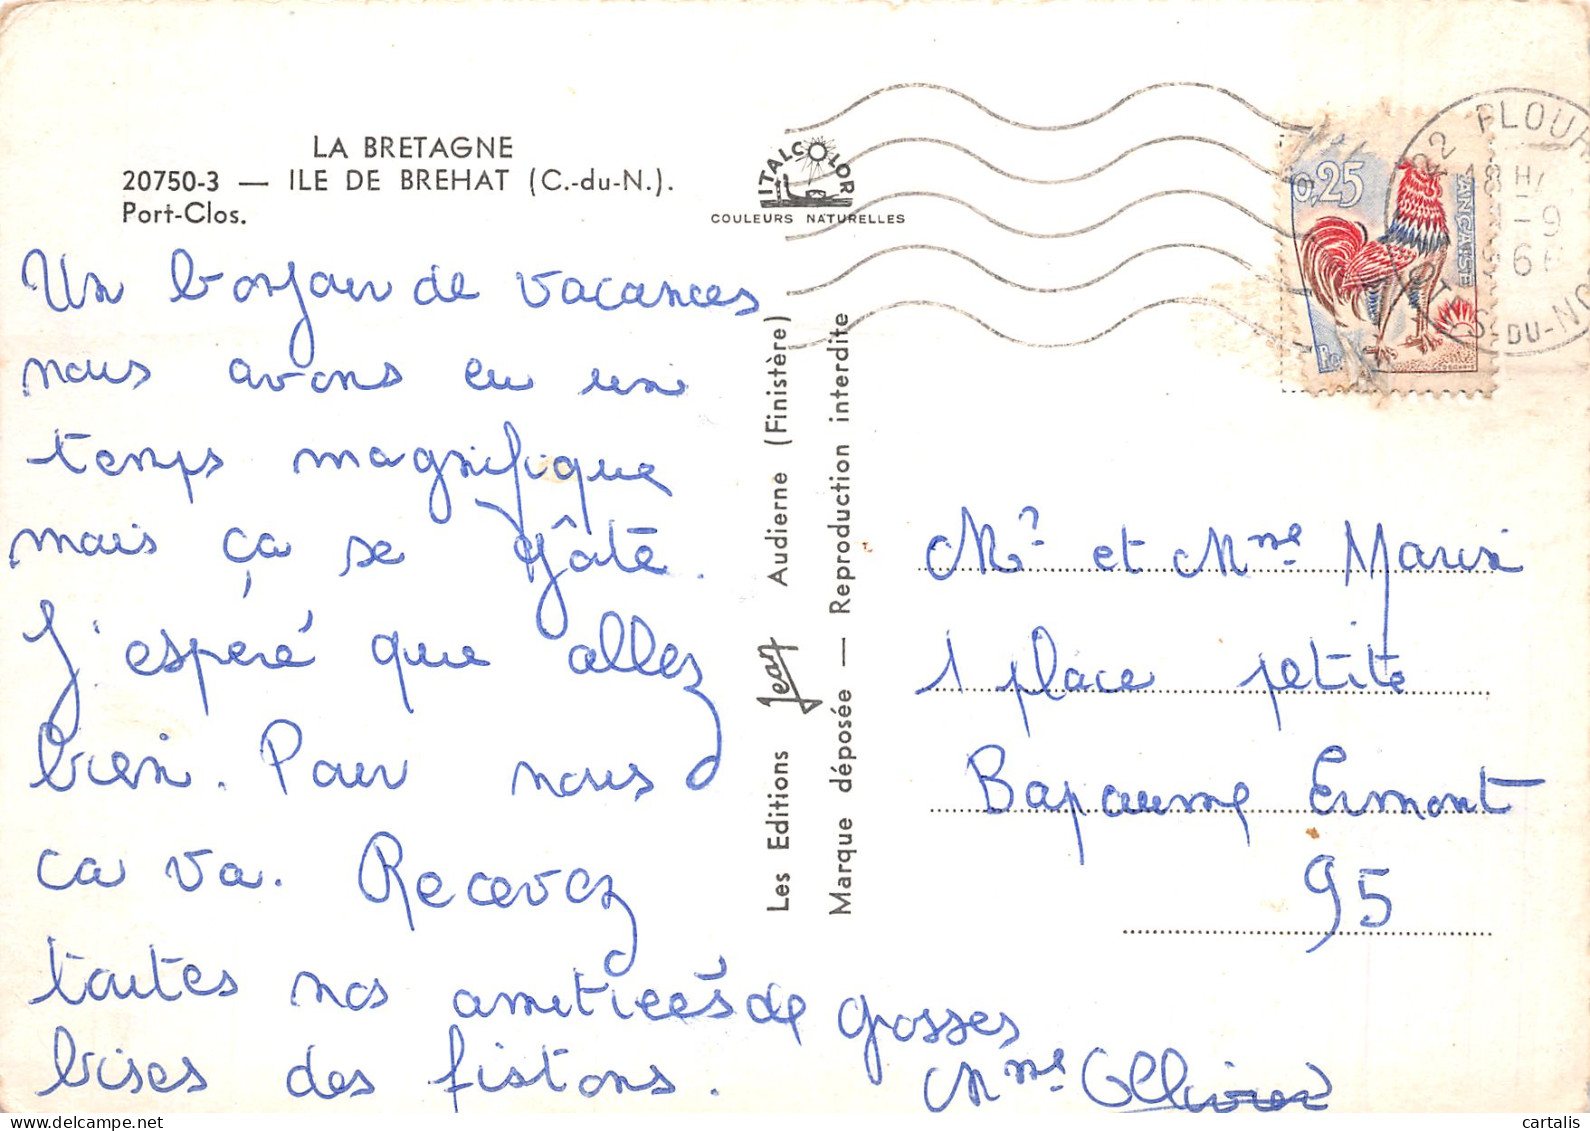 LA BRETAGNE
20750-3 — ILE DE BREHAT (C.-du-N.).
Port-Clos.
ITALCOLOR
COULEURS NATURELLES
0,25
22 PLOUR
18 H
-9
66
DU-NO
Un bonjour de vacances
nous avons eu un
temps magnifique
mais ça se gâte.
J'esperé que allez
bien. Pour nous
ca va. Recevez
toutes nos amitieés de grosses
bises des fistons.
Mme Ollivier
Les Editions Jean Audierne (Finistère)
Marque déposée — Reproduction interdite
Mr et Mme
1 place petite
Bapaume Ermont
95
cartalis
delcampe.net